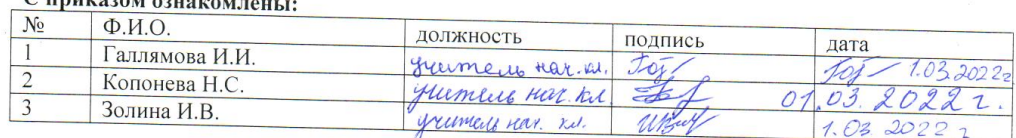 С приказом ознакомлены:
№ Ф.И.О. должность подпись дата
1 Галлямова И.И. учитель нач. кл. 1.03.2022г
2 Копонева Н.С. учитель нач. кл. 01.03.2022 г.
3 Золина И.В. учитель нач. кл. 1.03 2022 г